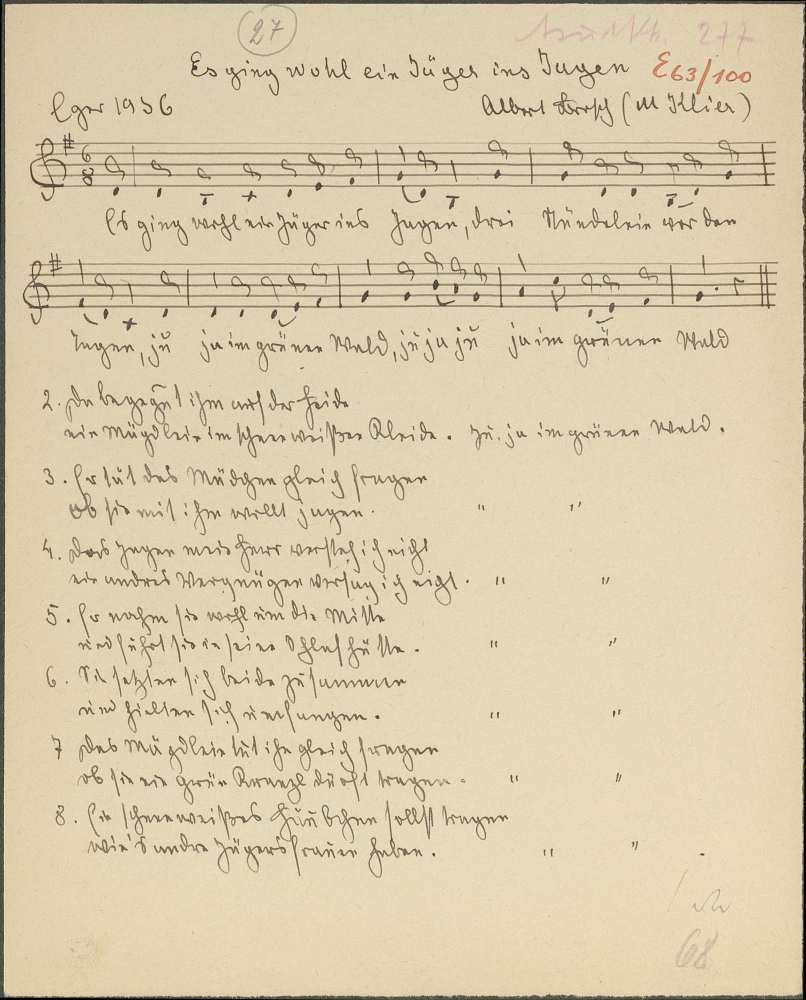 27
277
Es ging wohl ein Jäger ins Jagen E63/100
Eger 1936 Albert Brosch (M Klier)
Es ging wohl ein Jäger ins Jagen, drei Stündelein vor dem
Tagen, jŭ ja im grünen Wald, jŭ ja jŭ ja im grünen Wald
2. Da begegnt ihm auf der Heide
ein Mägdlein im schneeweißen Kleide. Jŭ. ja im grünen Wald.
3. Er tŭt das Mädchen gleich fragen
ob sie mit ihm wollt jagen. " "
4. Das Jagen mein Herr versteh ich nicht
ein andres Vergnügen versag ich nicht. " "
5. Er nahm sie wohl ŭm die Mitte
ŭnd führt sie in seine Schlafhütte. " "
6. Sie setzten sich beide zŭsammen
ŭnd hielten sich ŭmfangen. " "
7 Das Mägdlein tŭt ihn gleich fragen
ob sie ein grün Kranzl dürft tragen. " "
8. Ein schneeweißes Häŭbchen sollst tragen
wie's andre Jägersfraŭen haben. " " .
68